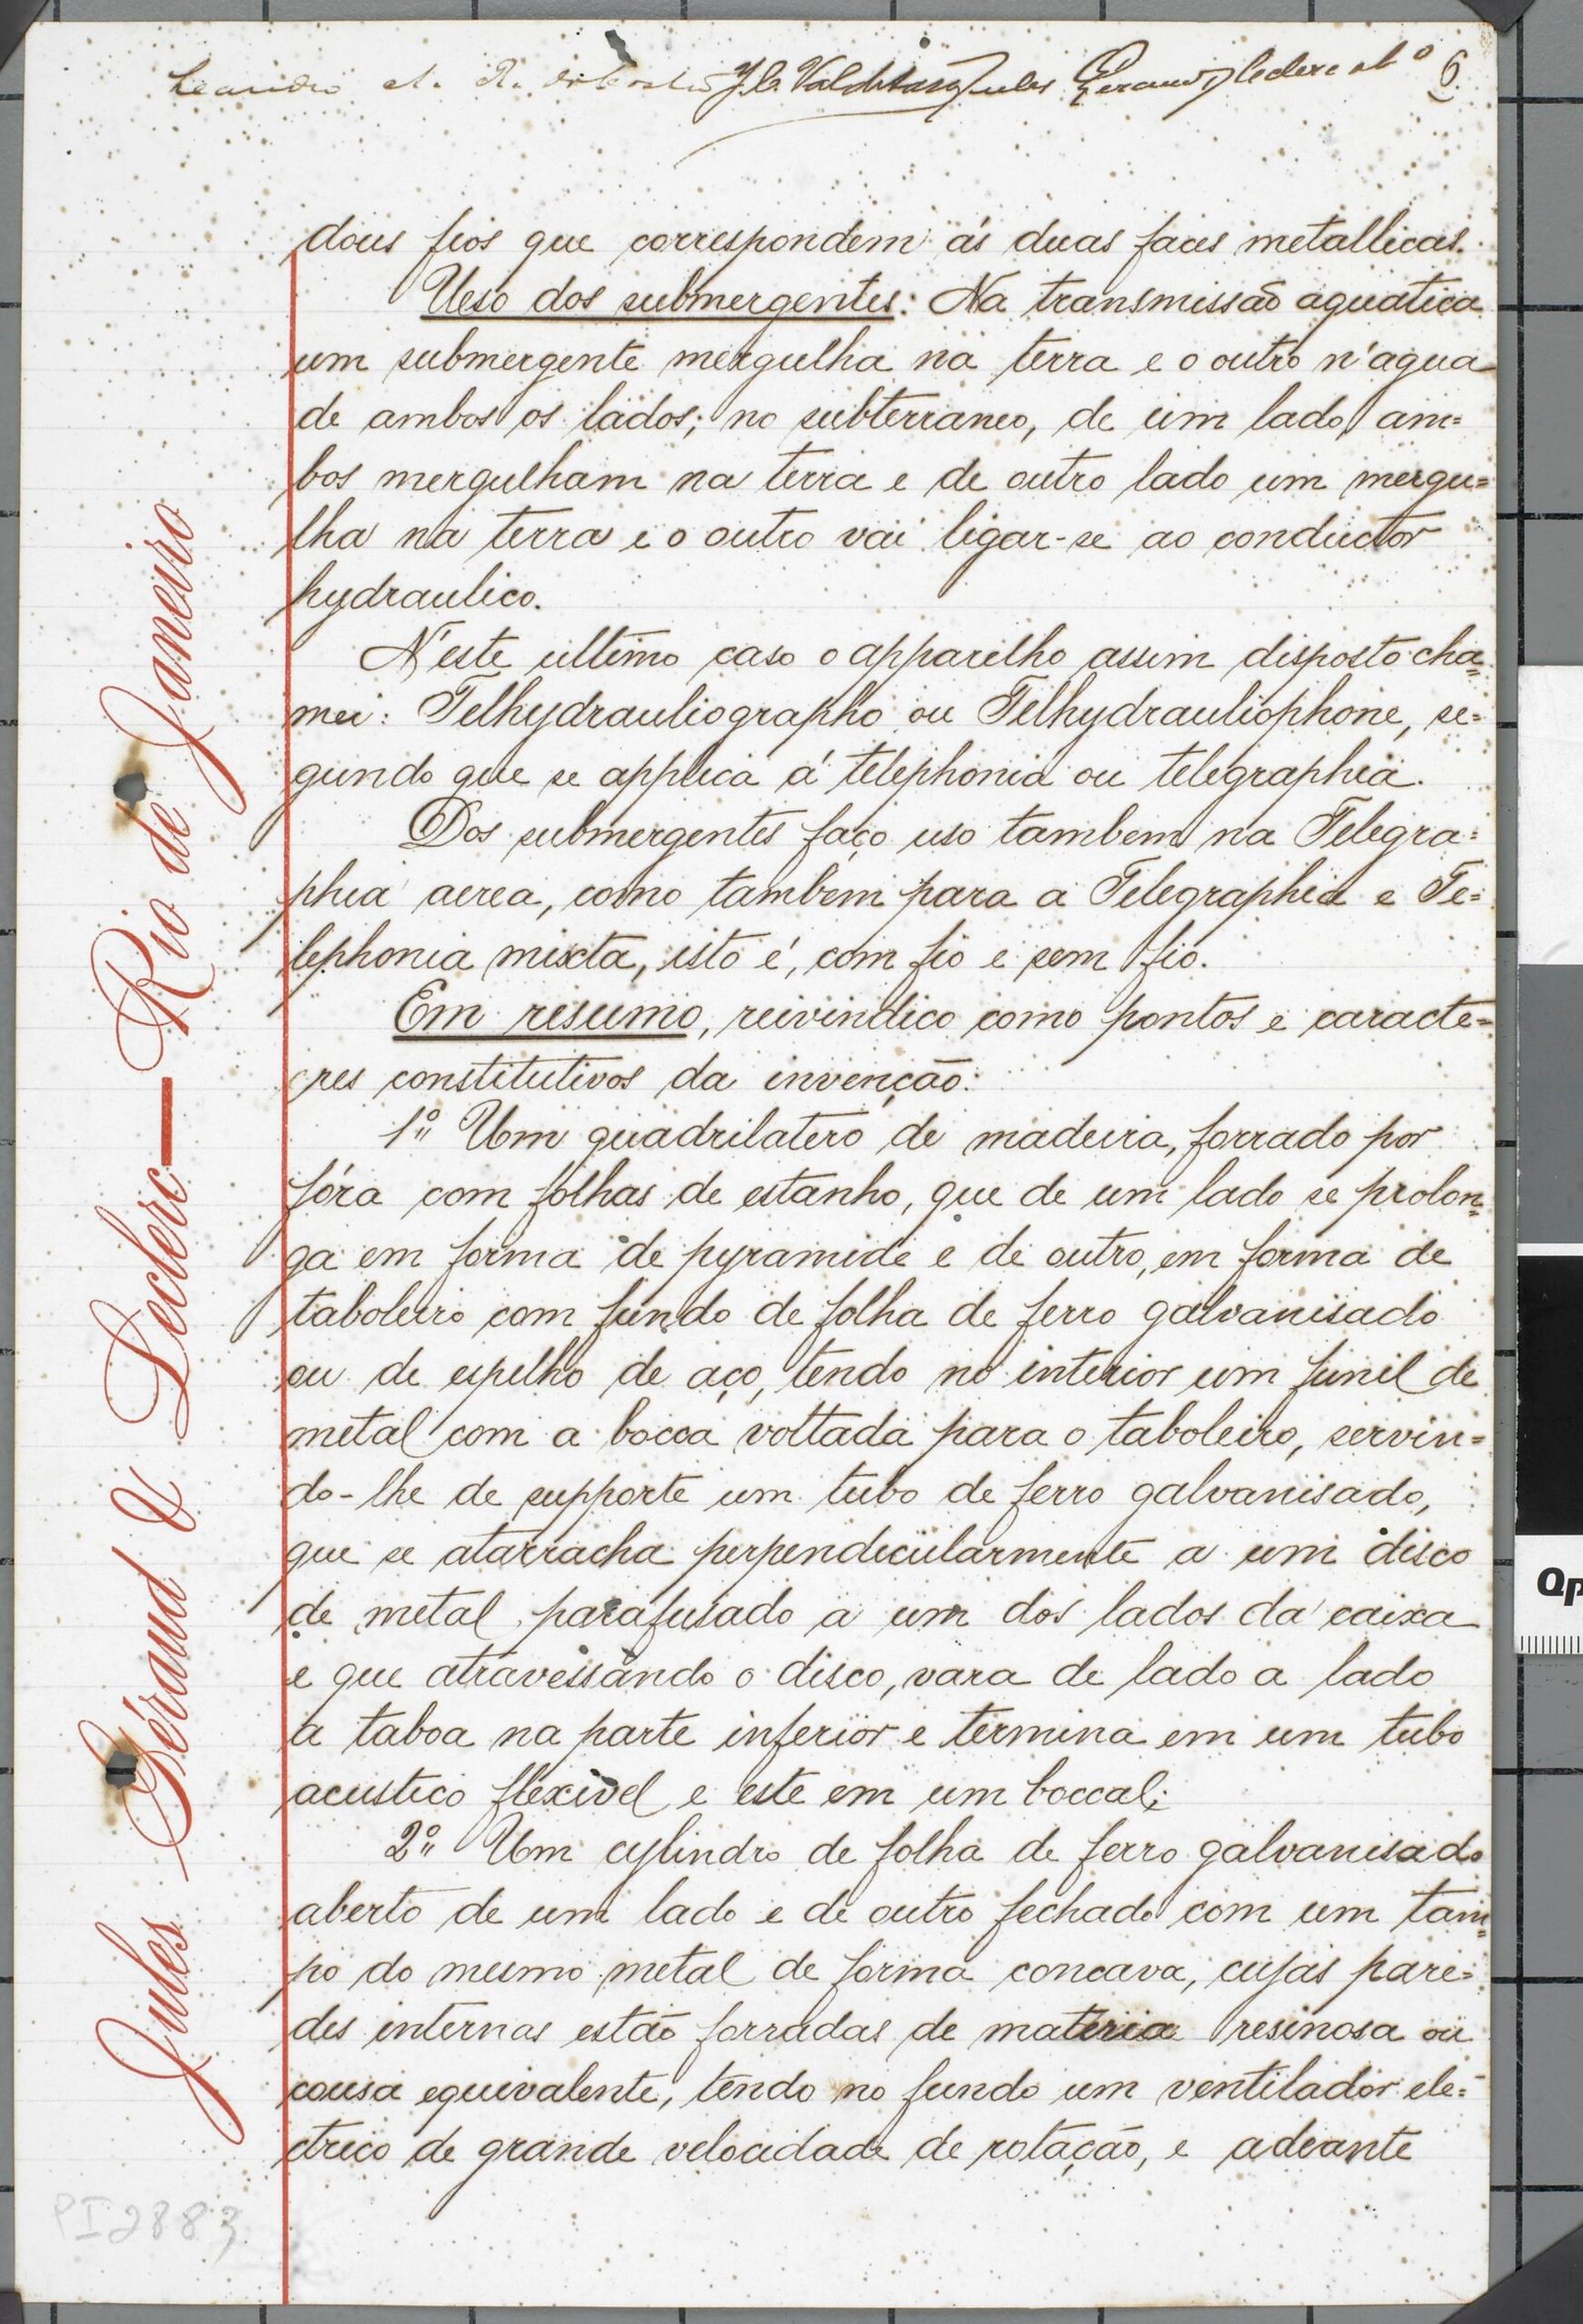 Leandro A. R. da Costa J. C. Valdetaro Jules Géraud Leclerc & Cº 6.
dous fios que correspondem ás duas faces metallicas.
Uso dos submergentes: Na transmissão aquatica
um submergente mergulha na terra e o outro n'agua
de ambos os lados; no subterraneo, de um lado, am=
bos mergulham na terra e de outro lado um mergu=
lha na terra e o outro vai ligar-se ao conductor
hydraulico.
N'este ultimo caso o apparelho assim disposto cha=
mei: Telhydrauliographo ou Telhydrauliophone, se=
gundo que se applica á telephonia ou telegraphia.
Dos submergentes faço uso tambem na Telegra=
phia aerea, como tambem para a Telegraphia e Te=
lephonia mixta, isto é, com fio e sem fio.
Em resumo, reivindico como pontos e caracte=
res constitutivos da invenção:
1º Um quadrilatero de madeira, forrado por
fóra com folhas de estanho, que de um lado se prolon=
ga em forma de pyramide e de outro, em forma de
taboleiro com fundo de folha de ferro galvanisado
ou de espelho de aço, tendo no interior um funil de
metal com a bocca voltada para o taboleiro, servin=
do-lhe de supporte um tubo de ferro galvanisado,
que se atarracha perpendicularmente a um disco
de metal parafusado a um dos lados da caixa
e que atravessando o disco, vara de lado a lado
a taboa na parte inferior e termina em um tubo
acustico flexivel e este em um boccal;
2º Um cylindro de folha de ferro galvanisado
aberto de um lado e de outro fechado com um tam=
po do mesmo metal de forma concava, cujas pare=
des internas estão forradas de materia resinosa ou
cousa equivalente, tendo no fundo um ventilador ele=
ctrico de grande velocidade de rotação, e adeante
Jules Géraud & Leclerc — Rio de Janeiro
PI 2883
Op